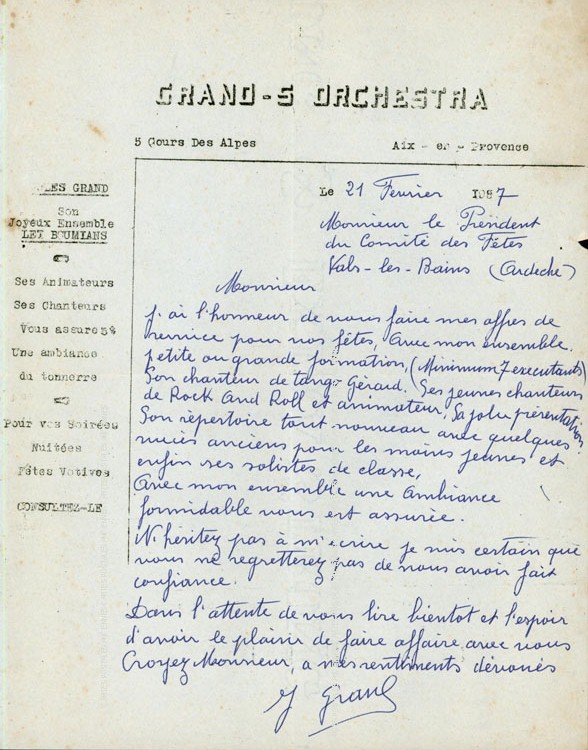 GRAND-S ORCHESTRA
5 Cours Des Alpes
Aix - en - Provence
LES GRAND
Son
Joyeux Ensemble
LEY BOUMIANS
Ses Animateurs
Ses Chanteurs
Vous assure
Une ambiance
du tonnerre
Pour vos Soirées
Nuitées
Fêtes Votives
CONSULTEZ-LE
Le 21 Fevrier 1967
Monsieur le Président
du Comité des Fêtes
Vals-les-Bains (Ardeche)
Monsieur
J'ai l'honneur de vous faire mes offres de
service pour vos fêtes, Avec mon ensemble.
petite ou grande formation, (Minimum 7 executants)
Son chanteur de tango Gérard. Ses jeunes chanteurs
de Rock And Roll et animateur, Sa jolie présentation
Son répertoire tout nouveau avec quelques
succès anciens pour les moins jeunes et
enfin ses solistes de classe,
Avec mon ensemble une Ambiance
formidable vous est assurée.
N'hésitez pas à m'ecrire je suis certain que
vous ne regretterez pas de nous avoir fait
confiance.
Dans l'attente de vous lire bientot et l'espoir
d'avoir le plaisir de faire affaire avec vous
Croyez Monsieur, a mes sentiments dévoués
J Grand